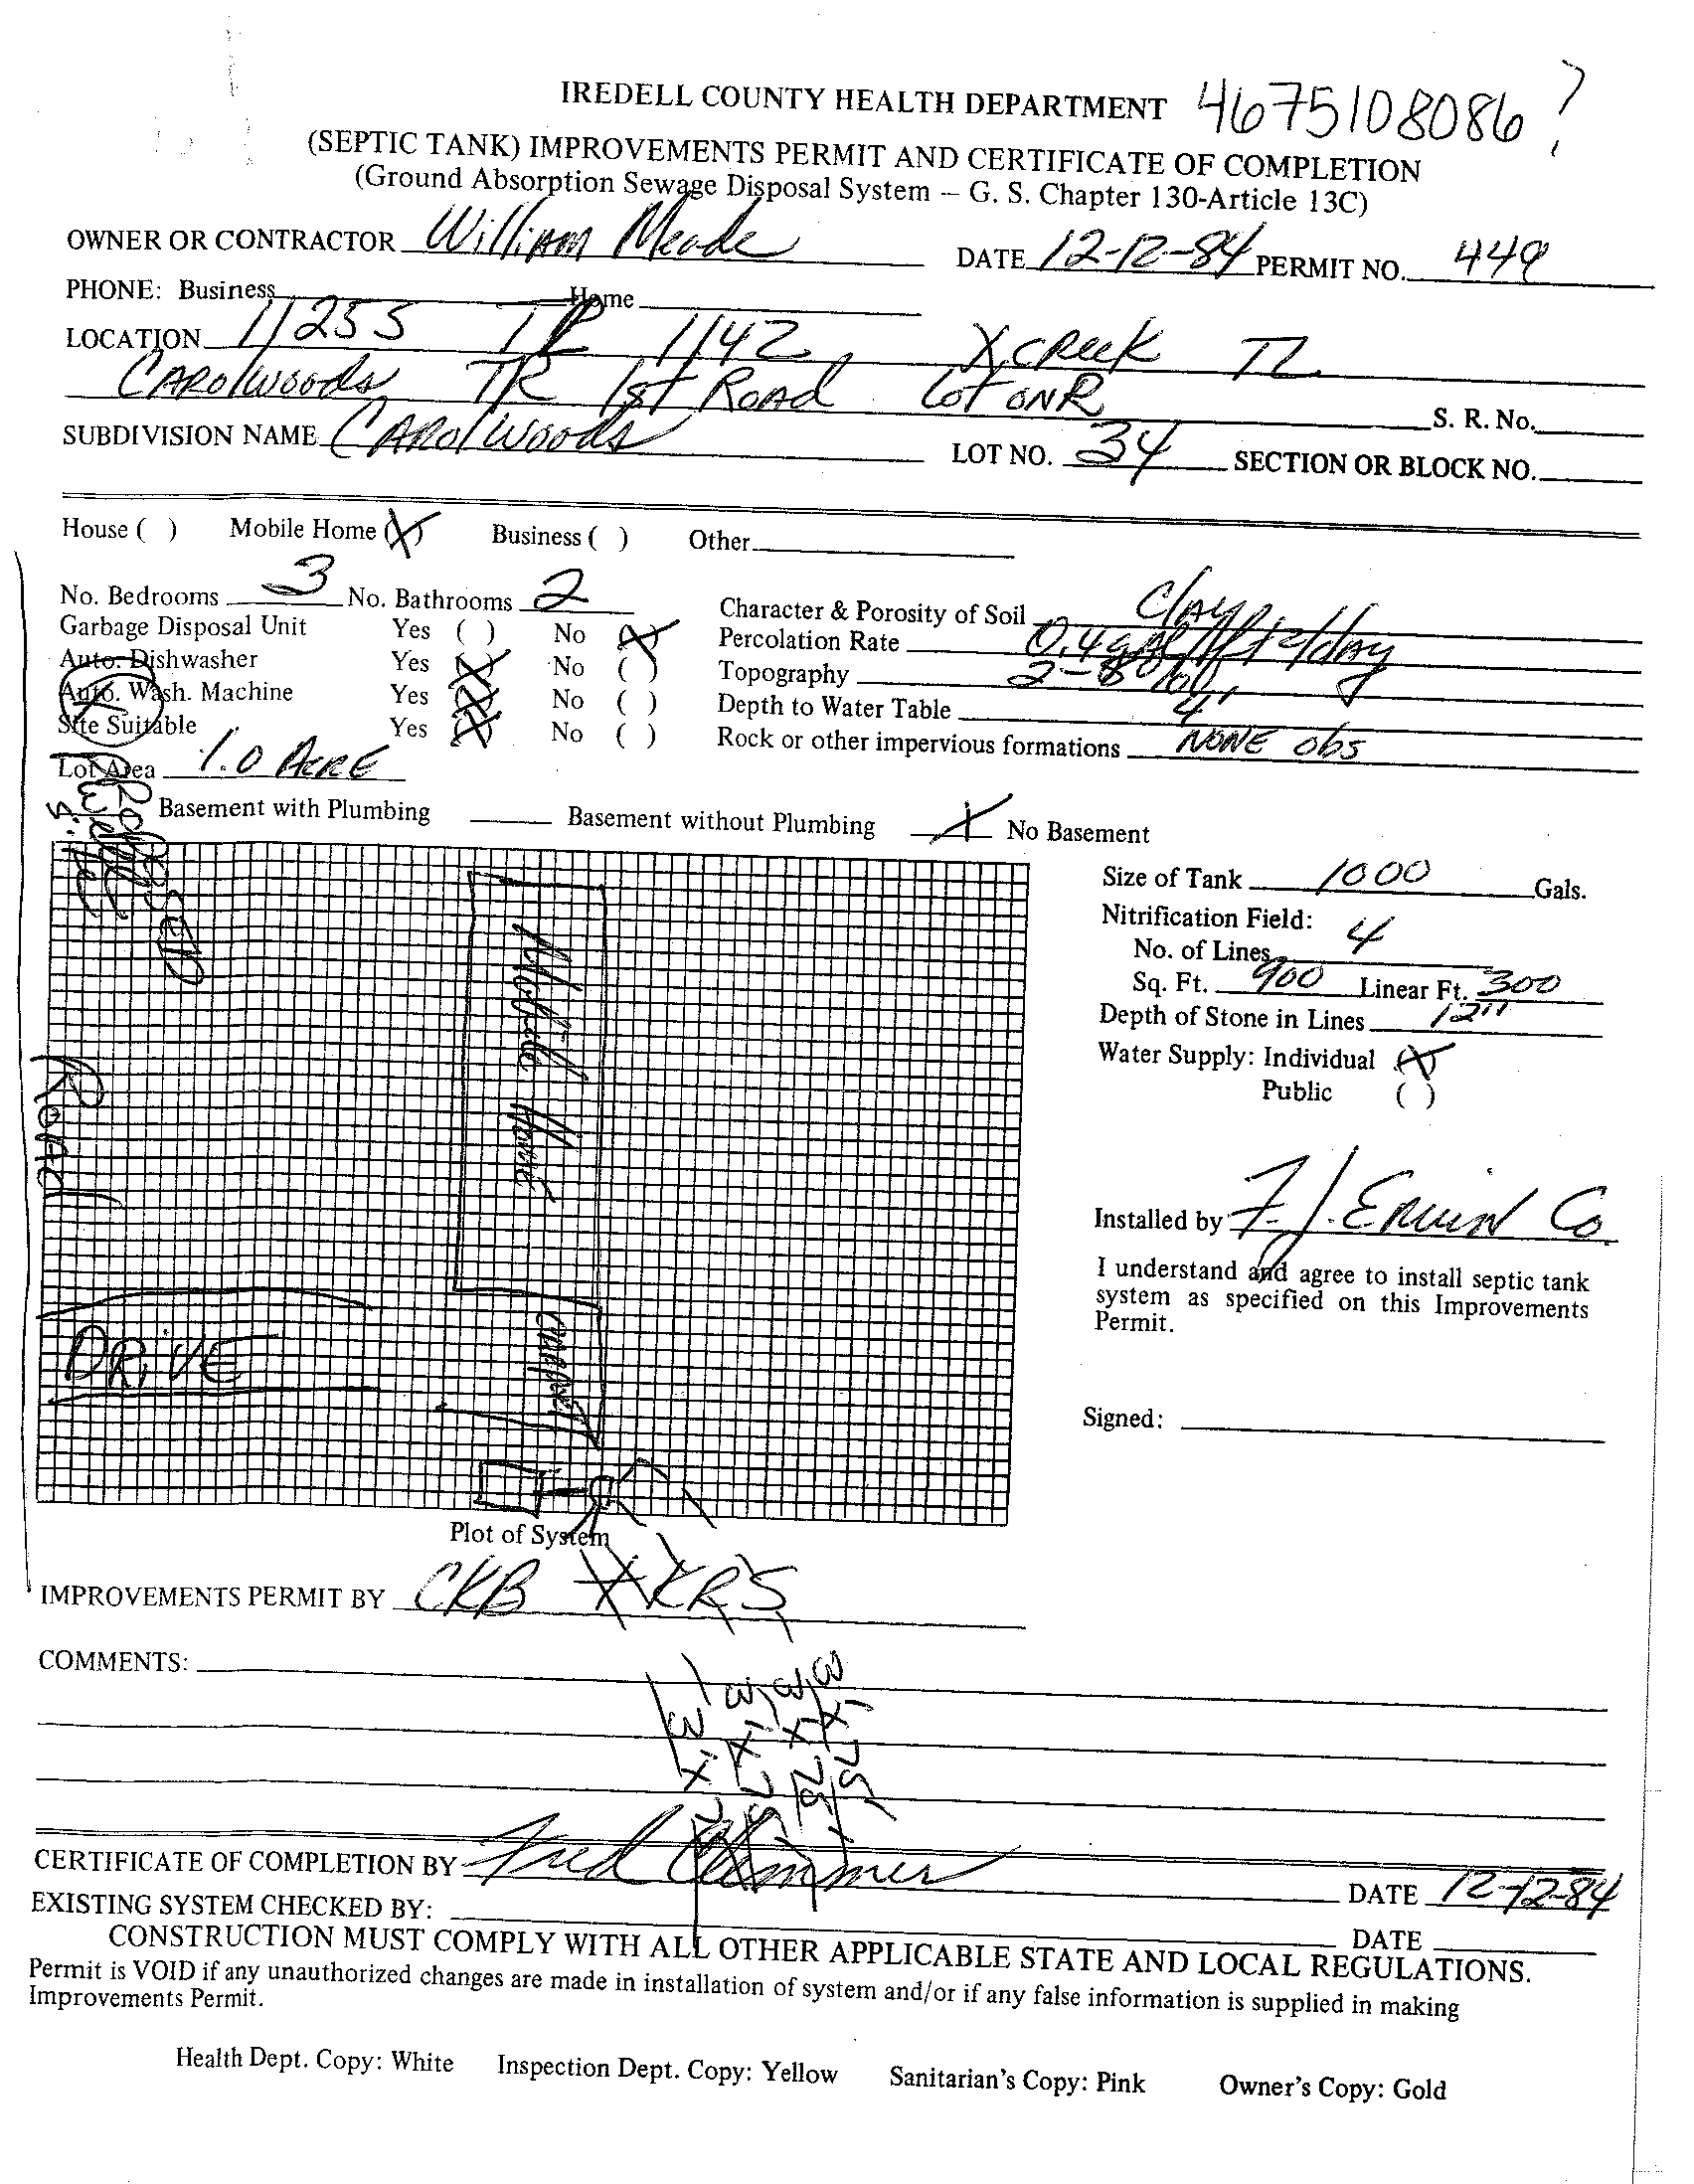 IREDELL COUNTY HEALTH DEPARTMENT 4675108086 ?
(SEPTIC TANK) IMPROVEMENTS PERMIT AND CERTIFICATE OF COMPLETION
(Ground Absorption Sewage Disposal System – G. S. Chapter 130-Article 13C)
OWNER OR CONTRACTOR William Meade DATE 12-12-84 PERMIT NO. 449
PHONE: Business Home
LOCATION 1125S TR 1142 X CREEK TL
CAROlWOODS TR 1st ROAD Lot ON R S. R. No.
SUBDIVISION NAME CAROlWOODS LOT NO. 34 SECTION OR BLOCK NO.
House ( ) Mobile Home (X) Business ( ) Other
No. Bedrooms 3 No. Bathrooms 2 Character & Porosity of Soil Clay
Garbage Disposal Unit Yes ( ) No (X) Percolation Rate 0.4 gal/ft2/day
Auto. Dishwasher Yes (X) No ( ) Topography 2-8%
Auto. Wash. Machine Yes (X) No ( ) Depth to Water Table 4'
Site Suitable Yes (X) No ( ) Rock or other impervious formations NONE obs
Lot Area 1.0 ACRE
Basement with Plumbing Basement without Plumbing X No Basement
PROPOSED
Well
Site
Mobile Home
ROAD
CARPORT
DRIVE
Size of Tank 1000 Gals.
Nitrification Field:
No. of Lines 4
Sq. Ft. 900 Linear Ft. 300
Depth of Stone in Lines 12"
Water Supply: Individual (X)
Public ( )
Installed by F. J. ERVIN Co.
I understand and agree to install septic tank
system as specified on this Improvements
Permit.
Signed:
Plot of System
IMPROVEMENTS PERMIT BY CKB KRS
COMMENTS:
3' x 75'
3' x 75'
3' x 75'
CERTIFICATE OF COMPLETION BY Fred DATE 12-12-84
EXISTING SYSTEM CHECKED BY: DATE
CONSTRUCTION MUST COMPLY WITH ALL OTHER APPLICABLE STATE AND LOCAL REGULATIONS.
Permit is VOID if any unauthorized changes are made in installation of system and/or if any false information is supplied in making
Improvements Permit.
Health Dept. Copy: White Inspection Dept. Copy: Yellow Sanitarian's Copy: Pink Owner's Copy: Gold